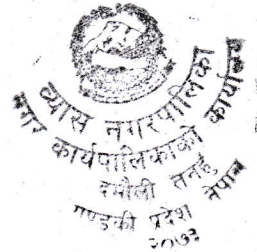 व्यास नगरपालिका
नगर कार्यपालिकाको कार्यालय
दमौली तनहुँ, नेपाल
गण्डकी प्रदेश
२०७३